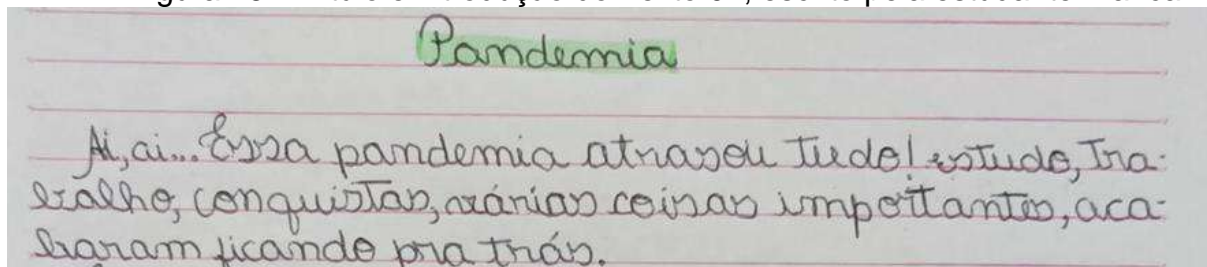 Pandemia
Ai, ai... Essa pandemia atrasou tudo! estudo, Tra-
balho, conquistas, várias coisas importantes, aca-
baram ficando pra trás.